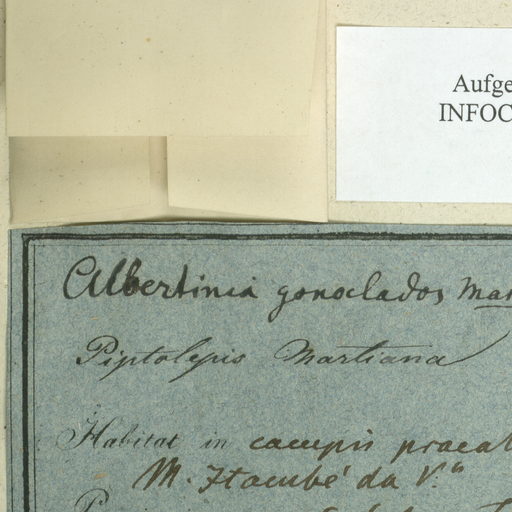 Aufge
INFOC
Albertinia gonoclados Mar
Piptolepis Martiana
Habitat in campis
M. Itambé da V.ª